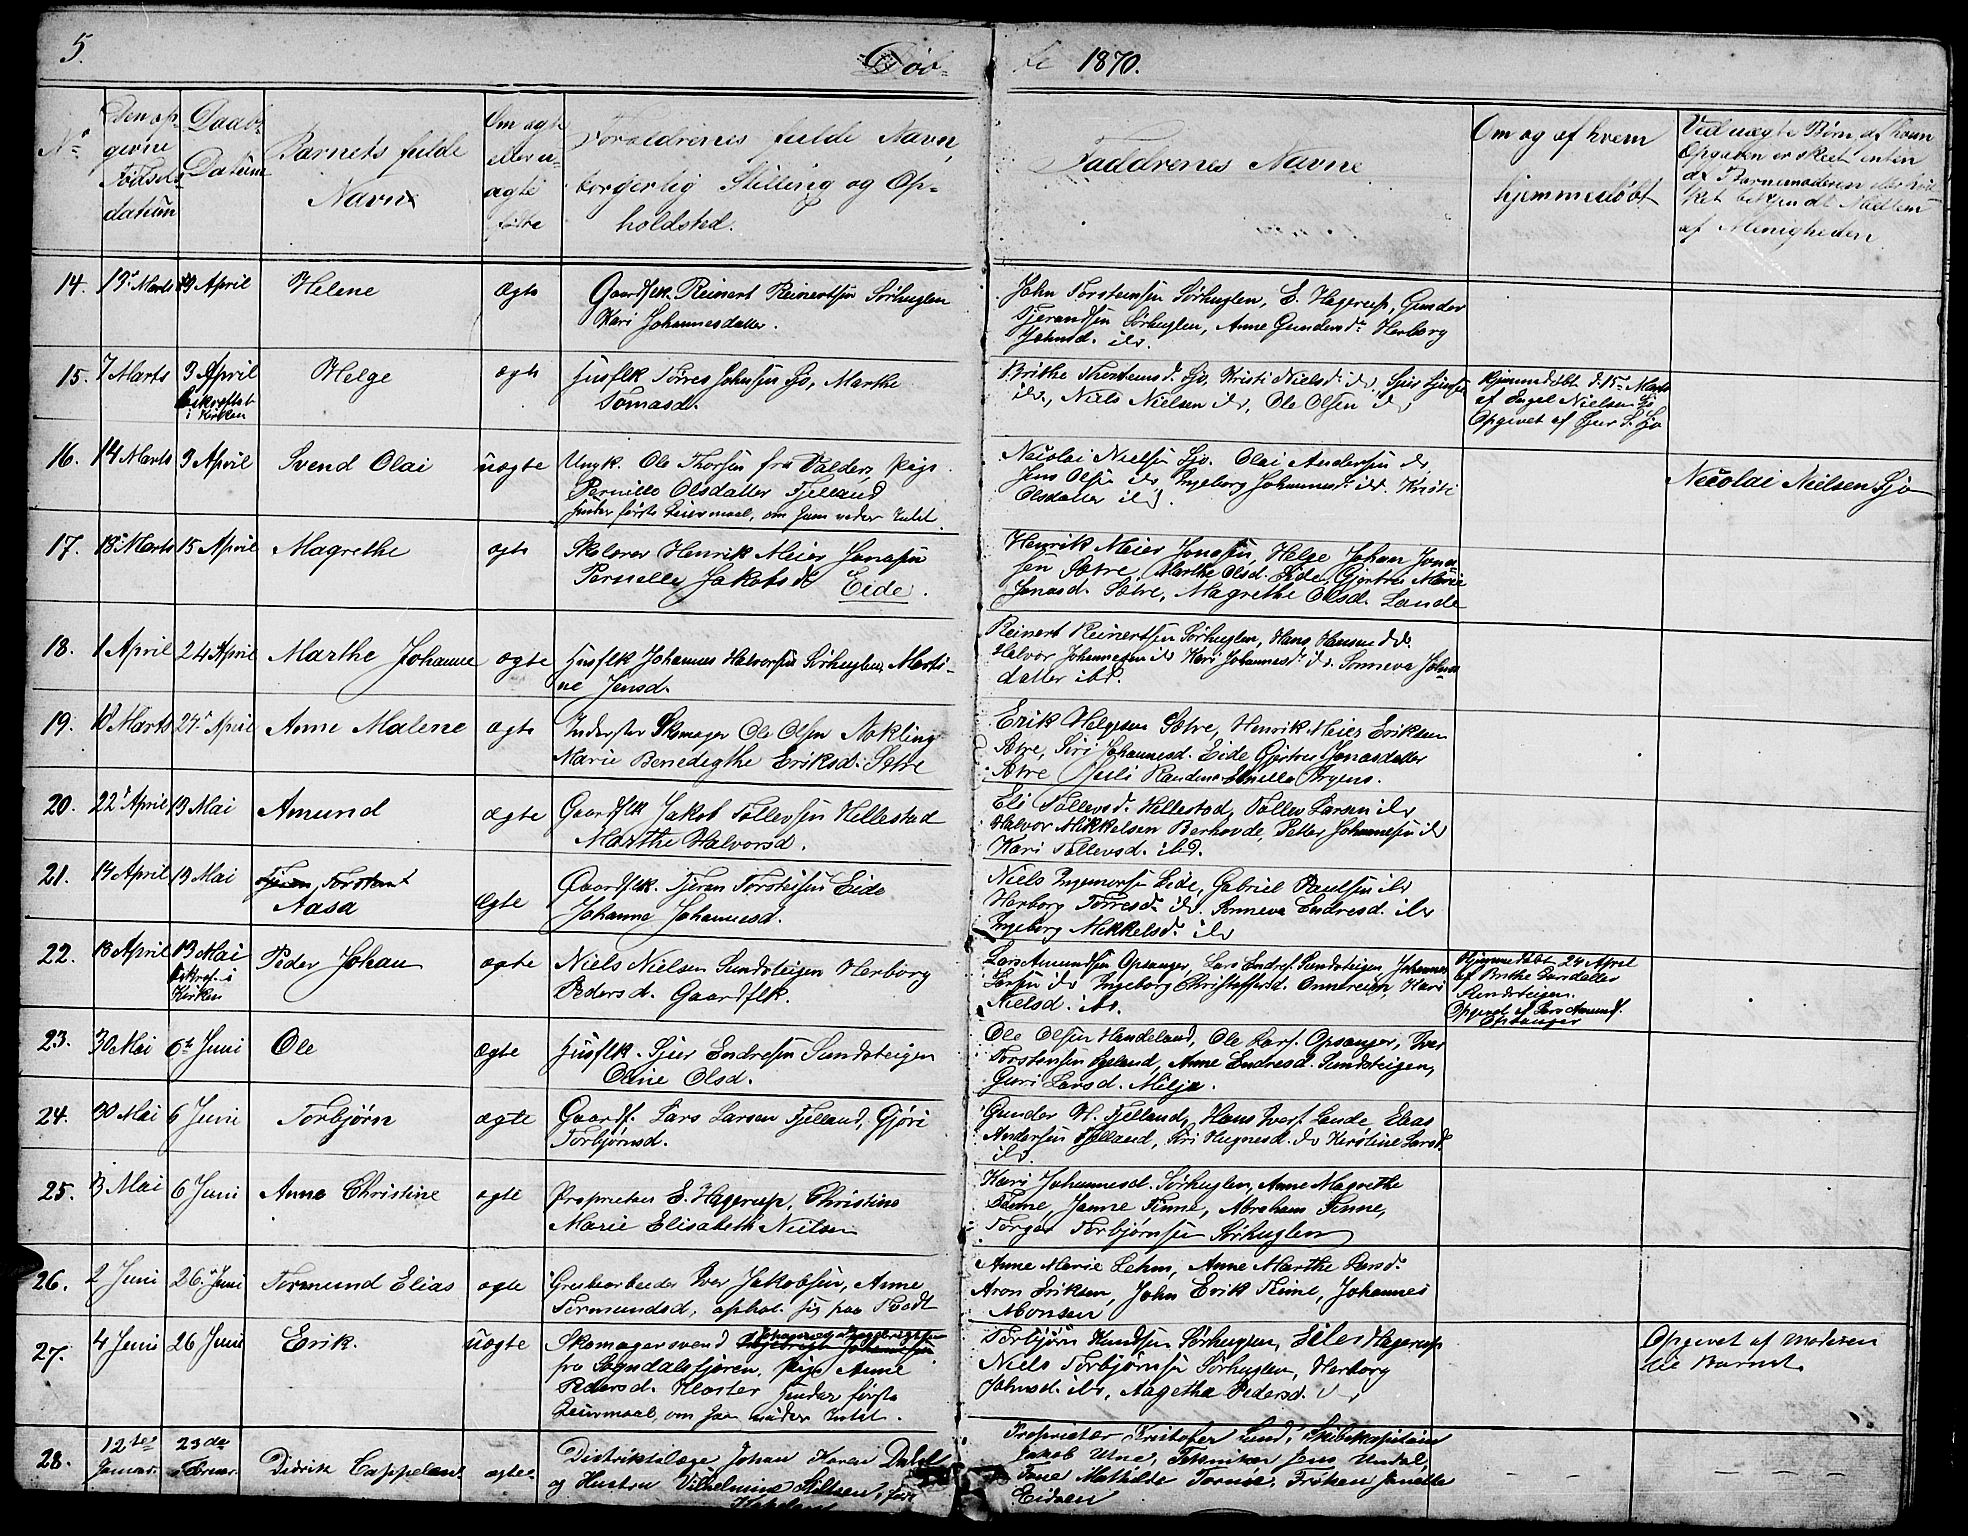 5.
Døb- te 1870.
No
Den op-
givne
Fødsels
datum
Daabs
Datum
Barnets fulde
Navn
Om ægte
eller u-
ægte
Forældrenes fulde Navn,
borgerlig Stilling og Op-
holdsted.
Faddrenes Navne
Om og af hvem
hjemmedøbt
Ved uægte Børn, af hvem
Opgaven er skeet enten
af Barnemoderen eller hvil
ket bekjendt Medlem
af Menigheden
14. 19 Marts 19 April Helene ægte Gaardflk. Reinert Reinertsen Sørhuglen
Kari Johannesdatter.
John Torsteinsen Sørhuglen, E. Hagerup, Gunder
Tjerandsen Sørhuglen, Anne Gundersd. Herborg
Johnsd. ibd.
15. 7 Marts 3 April Helge ægte Husflk Tørres Johnsen Sjo, Marthe
bekræftet
i Kirken
Tomasd.
Brithe Thorsteinsd. Sjo, Kristi Nielsd. ibd, Sjur Sjursen
ibd., Niels Nielsen ibd, Ole Olsen ibd
hjemmedøbt d. 15 Marts
af Engel Nielsen Sjo
Opgivet af Sjur S. Sjo
16. 14 Marts 3 April Svend Olai uægte Ungk. Ole Thorsen fra Valders, Pige
Pernille Olsdatter Fjelland
hendes første Leiermaal, om ham vides Intet.
Nicolai Nielsen Sjo. Olai Andersen ibd,
Jens Olsen ibd, Ingeborg Johannesd. ibd. Kristi
Olsdatter ibd.
Nicolai Nielsen Sjo
17. 18 Marts 15 April Magrethe ægte Skolærer Henrik Meier Jonasen
Pernelle Jakobsd. Eide.
Henrik Meier Jonasen, Helge Johan Jona-
sen Sætre, Marthe Olsd. Eide, Gjertrue Marie
Jonasd. Sætre, Magrethe Olsd. Lande
18. 1 April 24 April Marthe Johanne ægte Husflk Johannes Halvorsen Sørhuglen, Marti-
ne Jensd.
Reinert Reinertsen Sørhuglen, Hans Hansen ibd.
Halvor Johannesen ibd Kari Johannesd. ibd. Sonneva Johns
datter ibd.
19. 10 Marts 24 April Anne Malene ægte Inderster Skomager Ole Olsen Nøkling
Marie Benedigthe Eriksd. Sætre
Erik Helgesen Sætre, Henrik Meier Eriksen
Sætre, Siri Johannesd. Eide Gjertrue Jonasdatter
Sætre
20. 22 April 19 Mai Amund ægte Gaardflk Jakob Tollevsen Hellestad
Marthe Halvorsd.
Eli Tollevsd. Hellestad, Tollev Larsen ibd
Halvor Mikkelsen Berhovde, Petter Johannesen ibd
Kari Tollevsd. ibd.
21. 14 April 19 Mai Torstein
Aasa ægte Gaardflk. Tjeran Torsteisen Eide
Johanne Johannesd.
Niels Ingemorsen Eide, Gabriel Paulsen ibd
Herborg Tørresd. ibd. Sonneva Endresd. ibd
Ingeborg Mikkelsd. ibd
22. 13 April 19 Mai Peder Johan ægte Niels Nielsen Sundsteigen Herborg
bekræf. i
Kirken
Pedersd. Gaardflk.
Lars Amundsen Opsanger, Lars Endres. Sundsteigen, Johannes
Larsen ibd Ingeborg Christoffersd. Onnereim, Kari
Nielsd. ibd.
Hjemmedøbt 24 April
af Brithe Larsdatter
Sundsteigen.
Opgivet af Lars Amund.
Opsanger
23. 30 Mai 6te Juni Ole ægte Husflk. Sjur Endresen Sundsteigen
Oline Olsd.
Ole Olsen Handeland, Ole Lars. Opsanger, Iver
Torstensen Egeland, Anne Endresd. Sundsteigen,
Guri Larsd. Milja.
24. 30 Mai 6 Juni Torbjørn ægte Gaardf. Lars Larsen Fjelland, Gjøri
Torbjørnsd.
Gunder H. Fjelland, Hans Ivers. Lande, Elias
Andersen Fjelland, Siri Hognesd. ibd Kirstine Larsd.
ibd
25. 3 Mai 6 Juni Anne Christine ægte Proprietær E. Hagerup, Christine
Marie Elisabeth Nielsen
Kari Johannesd. Sørhuglen, Anne Magrethe
Finne, Janne Finne, Abraham Finne,
Torger Torbjørnsen Sørhuglen
26. 2 Juni 26 Juni Tormund Elias ægte Grubearbeider Iver Jakobsen, Anne
Tormundsd. ophol. sig paa Stordt
Anne Marie Lehm, Anne Marthe Larsd.
Aron Eriksen, John Erik Teime, Johannes
Monsen
27. 4 Juni 26 Juni Erik. uægte Skomagersvend
fra Sogndalsfjøren, Pige Anne
Pedersd. Kloster hendes første
Leiermaal, om ham vides Intet.
Torbjørn Knudsen Sørhuglen, Eiler Hagerup
Niels Torbjørnsen Sørhuglen, Herborg
Johnsd. ibd, Aagethe Pedersd.
Opgivet af Moderen
til Barnet
28. 12te Januar. 23de Februar. Didrik Cappelen ægte Distriktslæge Johan Koren Dahl
og Hustru Vilhelmine
Proprietær Kristofer Lund, Skibskaptein
Jakob Utne, Tekniker Jens Undal,
Mathilde Tornøe, Frøken Janette
Eidsen